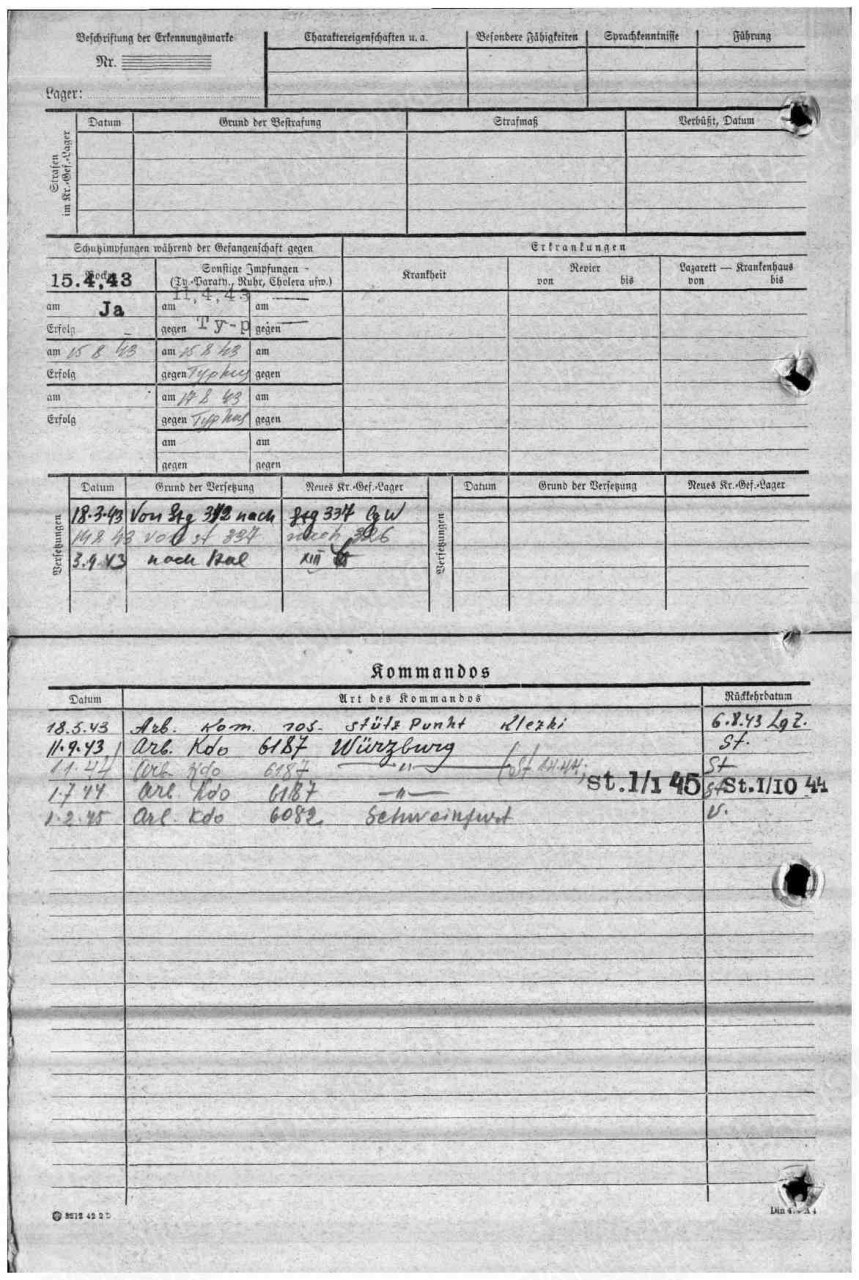 Beschriftung der Erkennungsmarke
Nr.
Lager:
Charaktereigenschaften u. a.
Besondere Fähigkeiten
Sprachkenntnisse
Führung
Strafen im Kr.-Gef.-Lager
Datum Grund der Bestrafung Strafmaß Verbüßt, Datum
Schutzimpfungen während der Gefangenschaft gegen
Erkrankungen
15.4,43
Sonstige Impfungen
(Ty.-Paraty., Ruhr, Cholera usw.)
Krankheit
Revier
von bis
Lazarett — Krankenhaus
von bis
am Ja am 11,4,43 am
Erfolg gegen Ty-p gegen
am 15 8 43 am 15 8 43 am
Erfolg gegen Typhus gegen
am am 17 8 43 am
Erfolg gegen Typhus gegen
am am
gegen gegen
Versetzungen
Datum Grund der Versetzung Neues Kr.-Gef.-Lager
18.3.43 Von Stg 312 nach Stg 337
19 8 43 von st 337 nach 326
3.9.43 nach XIII
Versetzungen
Datum Grund der Versetzung Neues Kr.-Gef.-Lager
Kommandos
Datum Art des Kommandos Rückkehrdatum
18.5.43 Arb. Kom. 105. Stütz Punkt Klezki 6.8.43 Lgz.
11.9.43 Arb. Kdo 6187 Würzburg St.
1.1.44 Arb. Kdo 6187 —"— St
1.7.44 Arb. Kdo 6187 —"— St.1/1 45 St St.1/10 44
1.2.45 Arb. Kdo 6082 Schweinfurt V.
Din 476 A 4